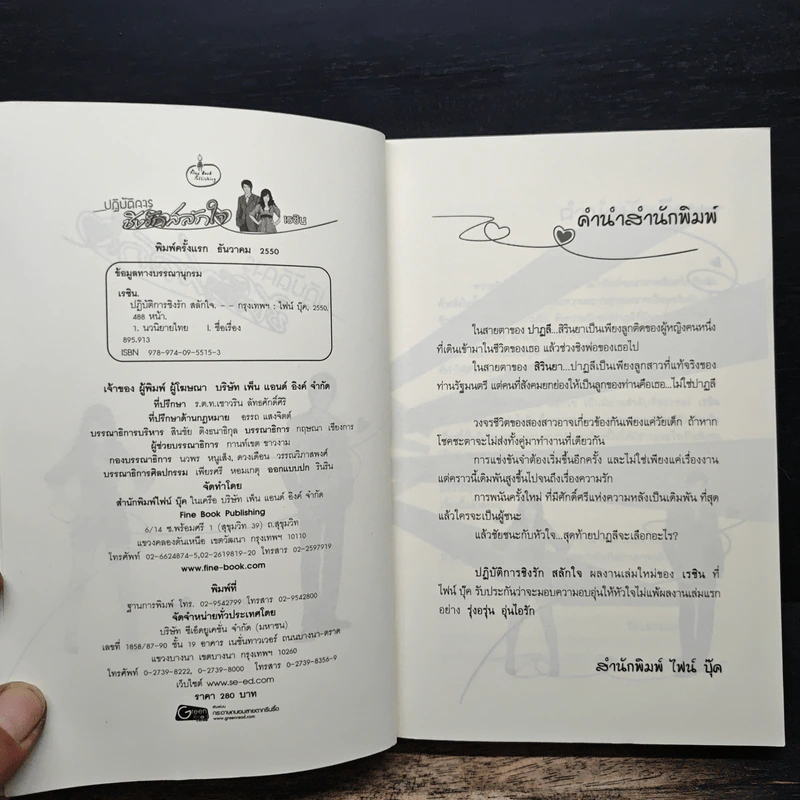 Fine Book
Publishing
ปฏิบัติการ
ชิงรักสลักใจ
เรซิน
พิมพ์ครั้งแรก ธันวาคม 2550
ข้อมูลทางบรรณานุกรม
เรซิน.
ปฏิบัติการชิงรัก สลักใจ. - - กรุงเทพฯ : ไฟน์ บุ๊ค, 2550,
488 หน้า.
1. นวนิยายไทย I. ชื่อเรื่อง
895.913
ISBN 978-974-09-5515-3
เจ้าของ ผู้พิมพ์ ผู้โฆษณา บริษัท เพ็น แอนด์ อิงค์ จำกัด
ที่ปรึกษา ร.ต.ท.เชาวริน ลัทธศักดิ์ศิริ
ที่ปรึกษาด้านกฎหมาย อรรถ แสงจิตต์
บรรณาธิการบริหาร สินชัย ดิงธนาธิกุล บรรณาธิการ กฤษณา เชียงการ
ผู้ช่วยบรรณาธิการ กานท์เขต ชาวงาม
กองบรรณาธิการ นวพร หนูเส็ง, ดวงเดือน วรรณวิภาสพงศ์
บรรณาธิการศิลปกรรม เพียรศรี หอมเกตุ ออกแบบปก ริบริน
จัดทำโดย
สำนักพิมพ์ไฟน์ บุ๊ค ในเครือ บริษัท เพ็น แอนด์ อิงค์ จำกัด
Fine Book Publishing
6/14 ซ.พร้อมศรี 1 (สุขุมวิท 39) ถ.สุขุมวิท
แขวงคลองตันเหนือ เขตวัฒนา กรุงเทพฯ 10110
โทรศัพท์ 02-6624874-5,02-2619819-20 โทรสาร 02-2597919
www.fine-book.com
พิมพ์ที่
ฐานการพิมพ์ โทร. 02-9542799 โทรสาร 02-9542800
จัดจำหน่ายทั่วประเทศโดย
บริษัท ซีเอ็ดยูเคชั่น จำกัด (มหาชน)
เลขที่ 1858/87-90 ชั้น 19 อาคาร เนชั่นทาวเวอร์ ถนนบางนา-ตราด
แขวงบางนา เขตบางนา กรุงเทพฯ 10260
โทรศัพท์ 0-2739-8222, 0-2739-8000 โทรสาร 0-2739-8356-9
เว็บไซต์ www.se-ed.com
ราคา 280 บาท
Green
กระดาษถนอมสายตากรีนรี้ด
www.greenread.com
คำนำสำนักพิมพ์
ในสายตาของ ปาฏลี...สิรินยาเป็นเพียงลูกติดของผู้หญิงคนหนึ่ง
ที่เดินเข้ามาในชีวิตของเธอ แล้วช่วงชิงพ่อของเธอไป
ในสายตาของ สิรินยา...ปาฏลีเป็นเพียงลูกสาวที่แท้จริงของ
ท่านรัฐมนตรี แต่คนที่สังคมยกย่องให้เป็นลูกของท่านคือเธอ...ไม่ใช่ปาฏลี
วงจรชีวิตของสองสาวอาจเกี่ยวข้องกันเพียงแค่วัยเด็ก ถ้าหาก
โชคชะตาจะไม่ส่งทั้งคู่มาทำงานที่เดียวกัน
การแข่งขันจำต้องเริ่มขึ้นอีกครั้ง และไม่ใช่เพียงแค่เรื่องงาน
แต่คราวนี้เดิมพันสูงขึ้นไปจนถึงเรื่องความรัก
การพนันครั้งใหม่ ที่มีศักดิ์ศรีแห่งความหลังเป็นเดิมพัน ที่สุด
แล้วใครจะเป็นผู้ชนะ
แล้วชัยชนะกับหัวใจ...สุดท้ายปาฏลีจะเลือกอะไร?
ปฏิบัติการชิงรัก สลักใจ ผลงานเล่มใหม่ของ เรซิน ที่
ไฟน์ บุ๊ค รับประกันว่าจะมอบความอบอุ่นให้หัวใจไม่แพ้ผลงานเล่มแรก
อย่าง รุ่งอรุ่น อุ่นไอรัก
สำนักพิมพ์ ไฟน์ บุ๊ค